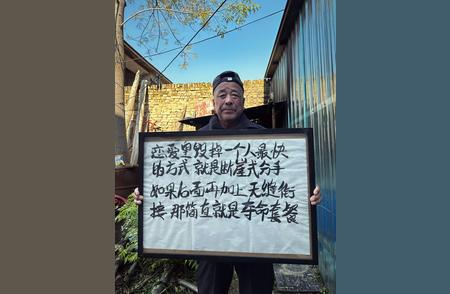 恋爱里毁掉一个人最快
的方式 就是断崖式分手
如果后面再加上 天缝衔
接 那简直就是夺命套餐